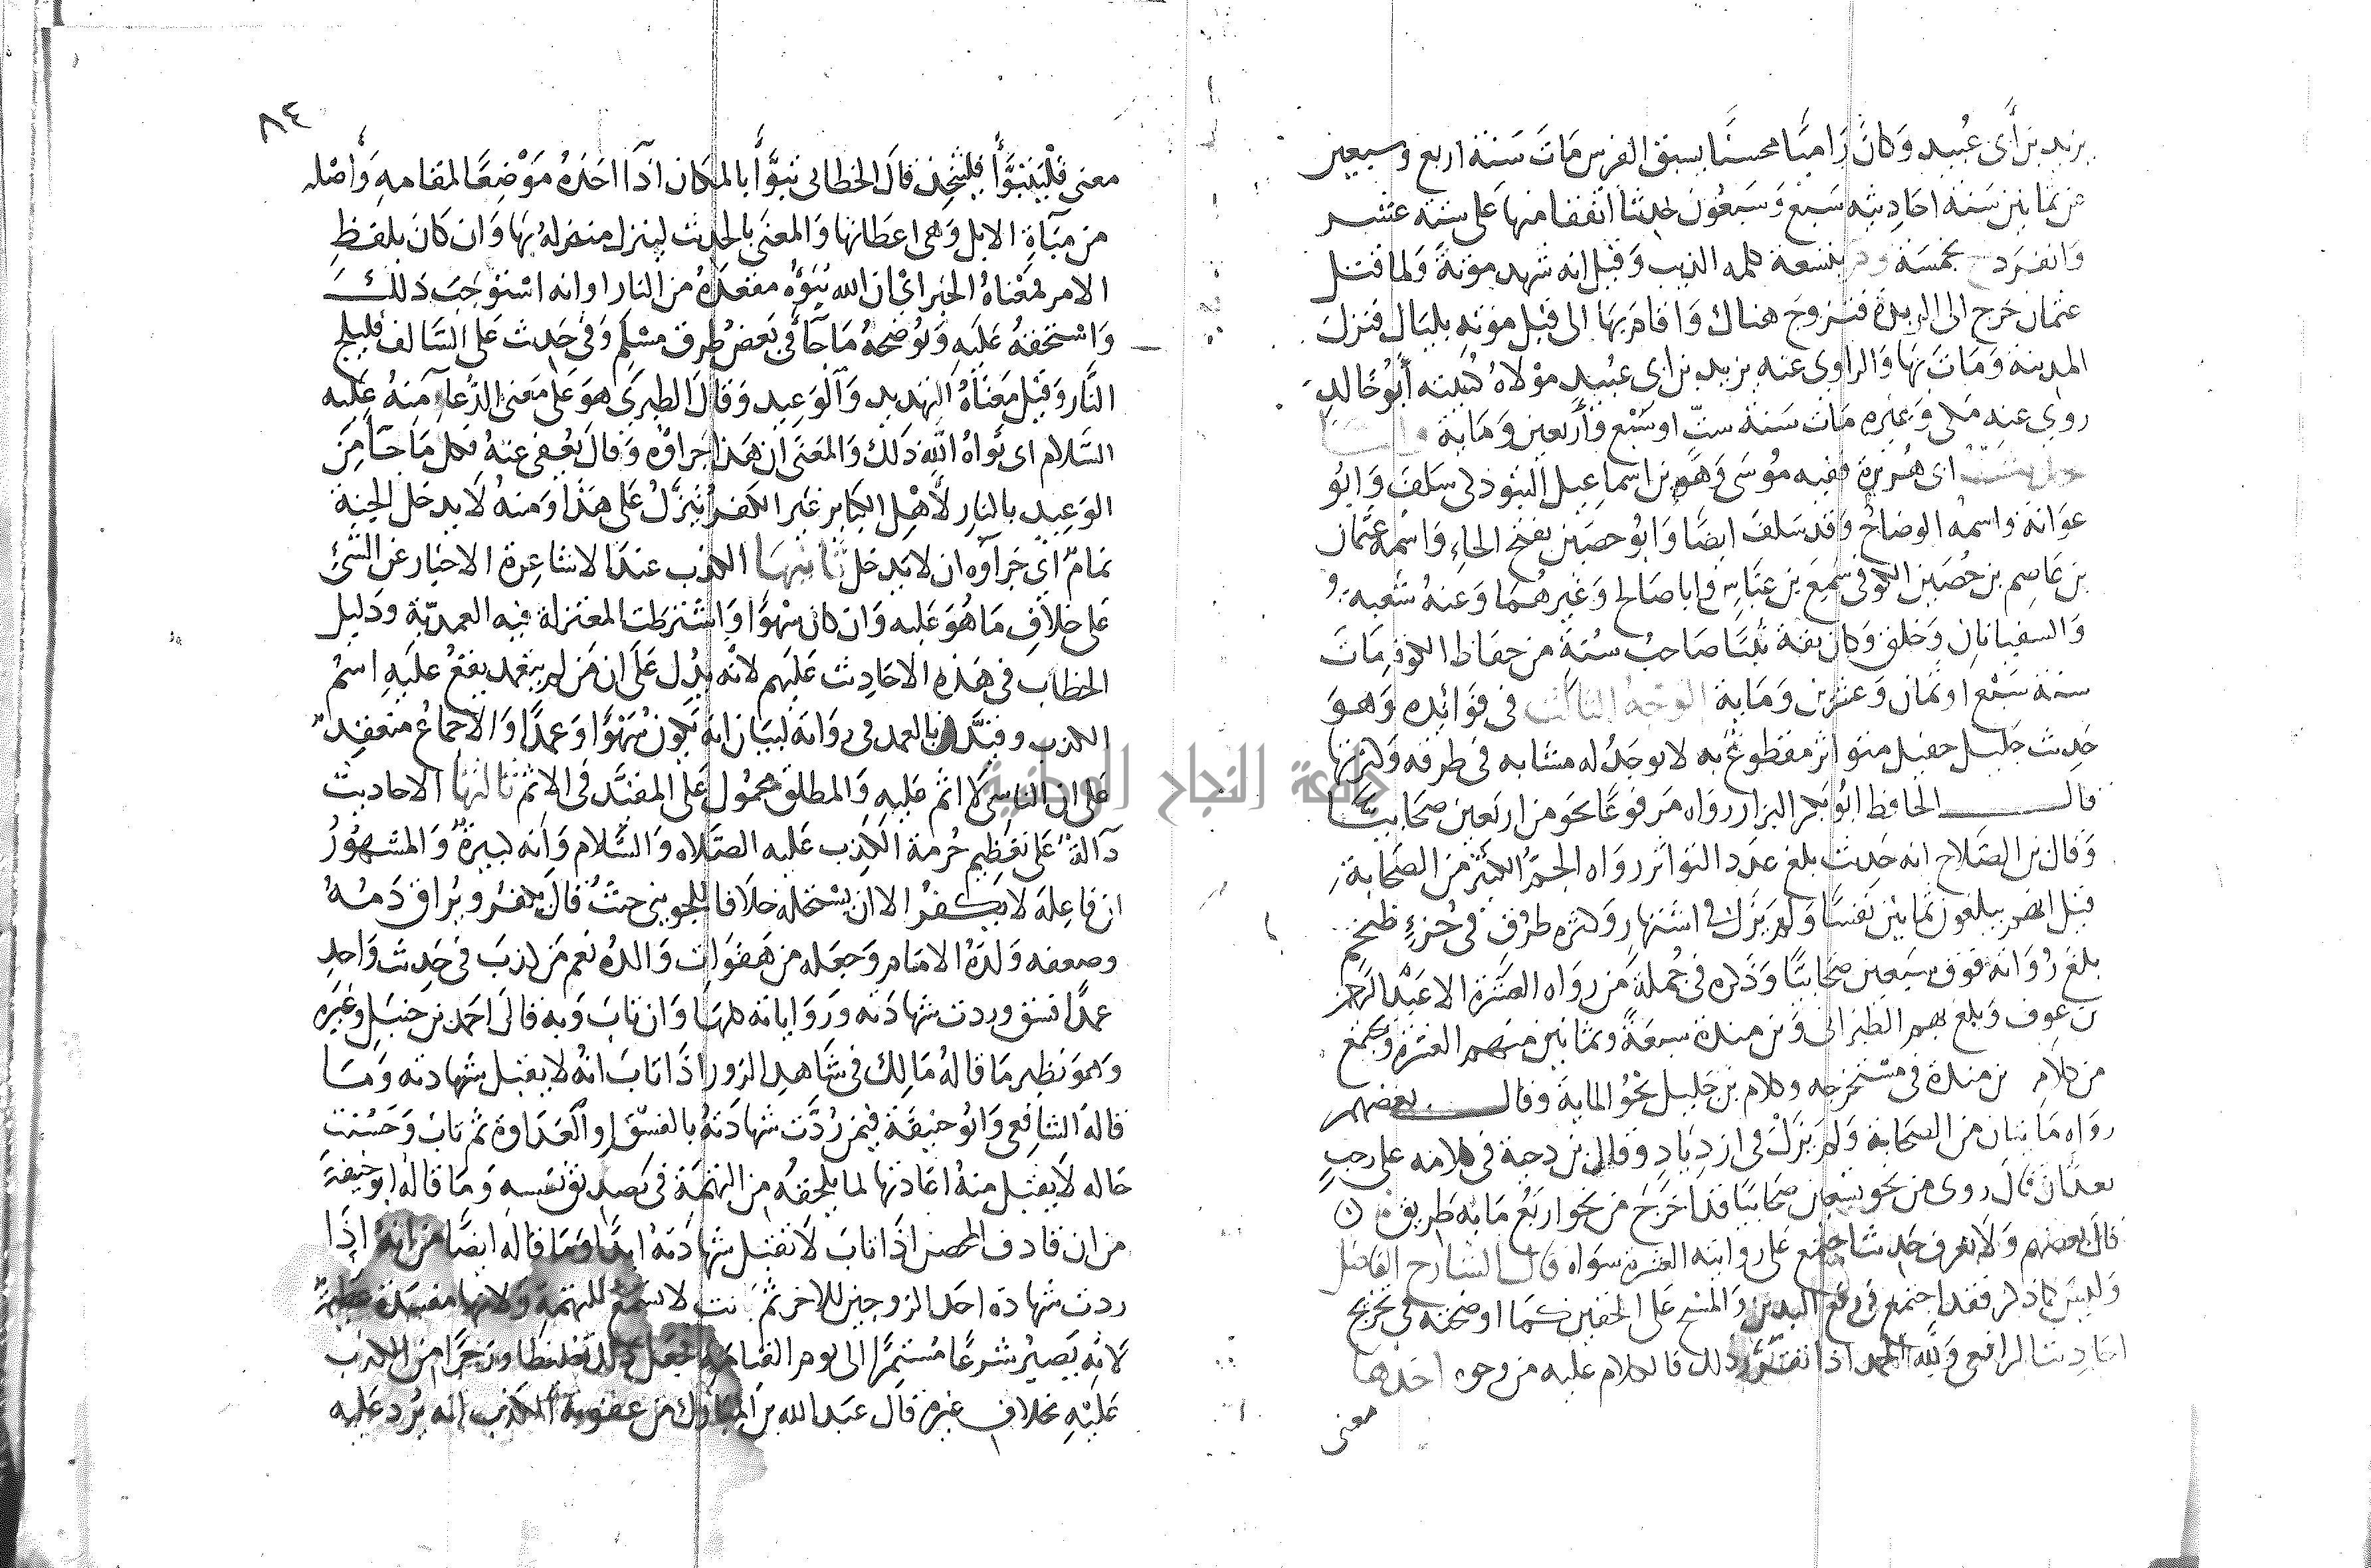 يزيد بن أبي عبيد وكان راميا محسنا يسبق الفرس مات سنة اربع وسبعين
عن ثمانين سنة احاديثه سبع وسبعون حديثا اتفقا منها على ستة عشر
وانفرد بخمسة وم بتسعة كلمه الذيب وقيل انه شهد موتة ولما قتل
عثمان خرج الى الربذة فتزوج هناك واقام بها الى قبل موته بليال فنزل
المدينة ومات بها والراوي عنه يزيد بن ابى عبيد مولاه كنيته أبو خالد
روى عنه مكي وغيره مات سنة ست او سبع وأربعين وماية
حديث ابى هريرة فيه موسى وهو بن اسماعيل التبوذكي سلف وابو
عوانة واسمه الوضاح وقد سلف ايضا وابو حصين بفتح الحاء واسمه عثمان
بن عاصم بن حصين الكوفي سمع بن عباس وابا صالح وغيرهما وعنه شعبه
والسفيانان وخلق وكان ثقة ثبتا صاحب سنة من حفاظ الكوفه مات
سنة سبع او ثمان وعشرين وماية الوجه الثالث في فوائده وهو
حديث جليل حفيل متواتر مقطوع به لا يوجد له مشابه في طرقه وكثرتها
قال الحافظ ابو بكر البزار رواه مرفوعا نحو من اربعين صحابيا
وقال بن الصلاح انه حديث بلغ عدد التواتر رواه الجم الكثير من الصحابة
قيل انهم يبلغون ثمانين نفسا ولم يزل في اشتهار وكثرة طرق في جزء ضخيم
بلغ رواته فوق سبعين صحابيا وذكره في جملة من رواه العشرة الا عبد الرحمن
بن عوف وبلغ بهم الطبراني وبن مندة سبعة وثمانين منهم العشرة وجمع
من كلام بن مندة في مستخرجه وكلام بن خليل نحو الماية وقال بعضهم
رواه مايتان من الصحابة ولم يزل في ازدياد وقال بن دحية في كلامه على رجب
بعد أن قال روى من نحو تسعين صحابيا قد اخرج من نحو اربع مايه طريق
قال بعضهم ولا يعرف حديث اجتمع على روايته العشرة سواه قال الشارح الفاضل
وليس كما ذكر فقد اجتمع في رفع اليدين والمسح على الخفين كما اوضحته في تخريج
احاديث الرافعي ولله الحمد اذا تقرر ذلك فالكلام عليه من وجوه احدها
معنى
٨٤
معنى فليتبوأ فليتخذ قال الخطابي تبوأ بالمكان اذا اخذه موضعا لمقامه وأصله
من مباة الابل وهى اعطانها والمعنى بالحديث لينزل منزله بها وان كان بلفظ
الامر فمعناه الخبر اي ان الله يبوؤه مقعده من النار او انه استوجب ذلك
واستحقه عليه ويوضحه ما جا في بعض طرق مسلم وفي حديث على السالف فليلج
النار وقيل معناه التهديد والوعيد وقال الطبري هو على معنى الدعاء منه عليه
السلام اي بوأه الله ذلك والمعنى ان هذا جزاؤه وقال يعفى عنه وكل ما جا من
الوعيد بالنار لأهل الكباير غير الكفر ينزل على هذا ومنه لا يدخل الجنة
نمام اي جزاؤه ان لا يدخل ثانيها الكذب عند الاشاعرة الاخبار عن الشئ
على خلاف ما هو عليه وان كان سهوا واشترطت المعتزلة فيه العمدية ودليل
الخطاب في هذه الاحاديث عليهم لانه يدل على ان من لم يتعمد يقع عليه اسم
الكذب وقيد بالعمد في رواية لبيان انه يكون سهوا وعمدا والاجماع منعقد
على ان الناسي لا اثم عليه والمطلق محمول على المقيد في الاثم ثالثها الاحاديث
دالة على تعظيم حرمة الكذب عليه الصلاه والسلام وانه كبيرة والمشهور
ان فاعله لا يكفر الا ان يستحله خلافا للجويني حيث قال يكفر ويراق دمه
وضعفه ولده الامام وجعله من هفوات والده نعم من كذب في حديث واحد
عمدا فسق وردت شهادته ورواياته كلها وان تاب وبه قال احمد بن حنبل وغيره
وهو نظير ما قاله مالك في شاهد الزور اذا تاب انه لا يقبل شهادته وما
قاله الشافعي وابو حنيفة فيمن ردت شهادته بالفسق او العداوة ثم تاب وحسنت
حاله لا يقبل منه اعادتها لما يلحقه من التهمة في تصديق نفسه وما قاله ابو حنيفة
من ان قاذف المحصن اذا تاب لا تقبل شهادته ابدا وما قاله ايضا من انه اذا
ردت شهادة احد الزوجين للاخر ثم بانت لا تسمع للتهمة ولانها مفسدة عظيمة
لانه يصير شرعا مستمرا الى يوم القيامة فجعل ذلك تغليظا وزجرا من الكذب
عليه بخلاف غيره قال عبد الله بن المبارك من عقوبة الكذاب انه يرد عليه
جامعة النجاح الوطنية